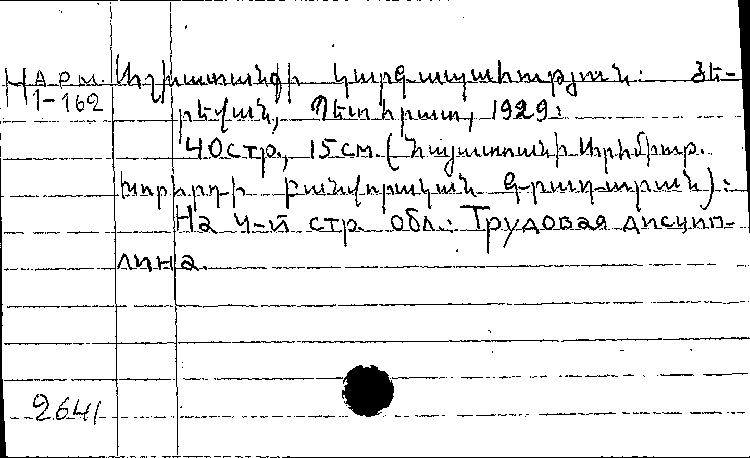 НАРМ. Աշխատանքի կարգապահություն: Յե-
1-162
րեվան, Պետհրատ, 1929:
40 стр., 15 см. (Հայաստանի Արհմիութ.
խորհրդի բանվորական գրադարան):
На 4-й стр. обл.: Трудовая дисцип-
лина.
2641